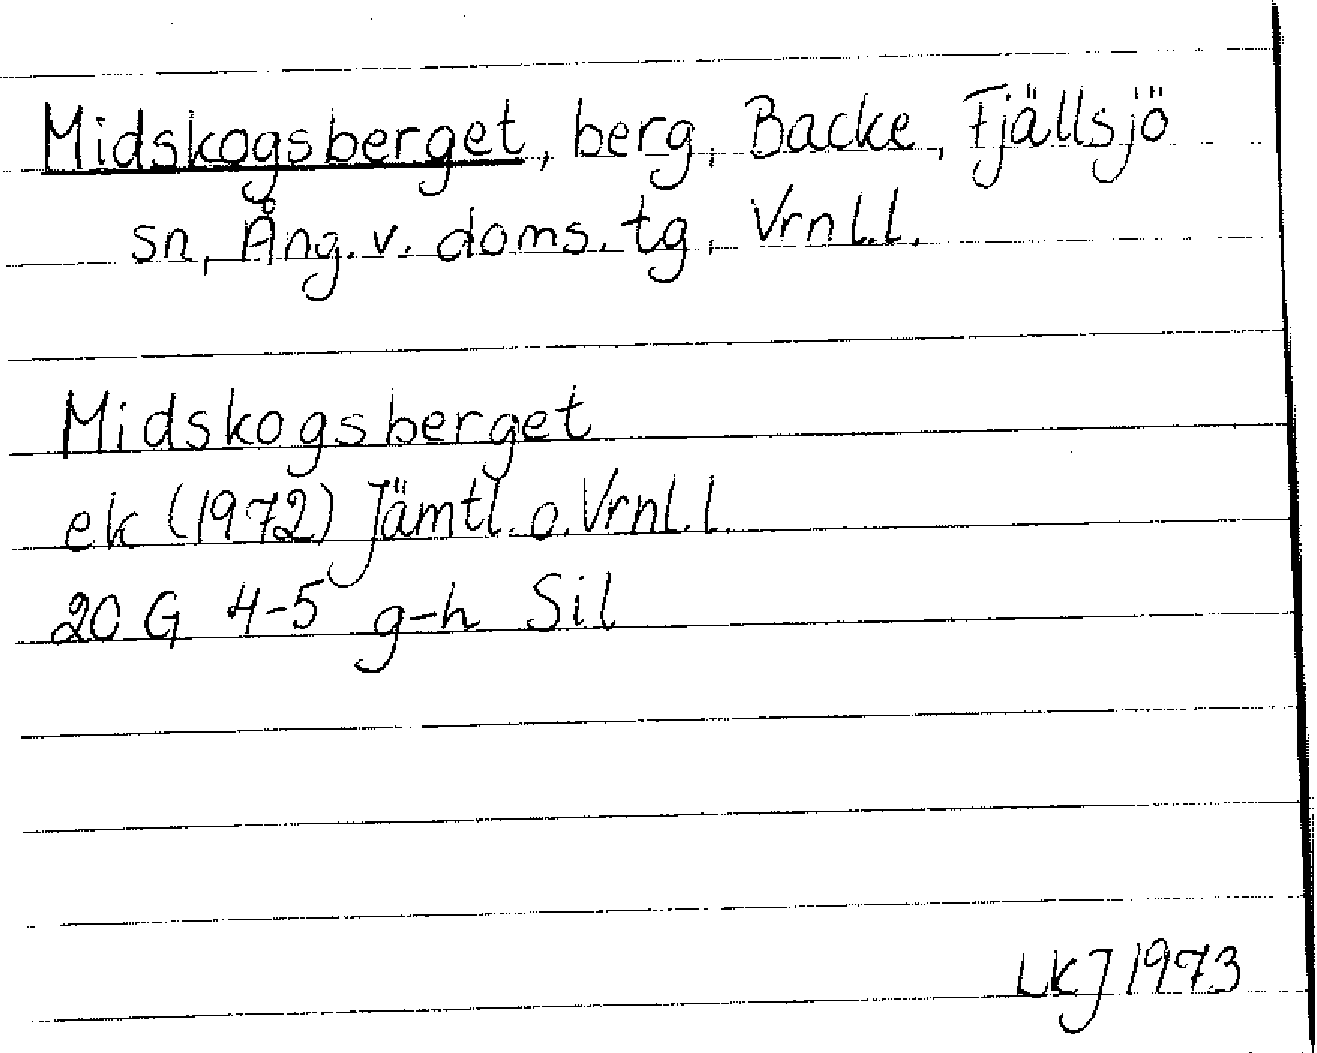 Midskogsberget, berg, Backe, Fjällsjö
sn, Ång. v. doms. tg, Vrnl.l.
Midskogsberget
ek (1972) Jämtl. o. Vrnl. l.
20 G 4-5 g-h Sil
LKJ 1973